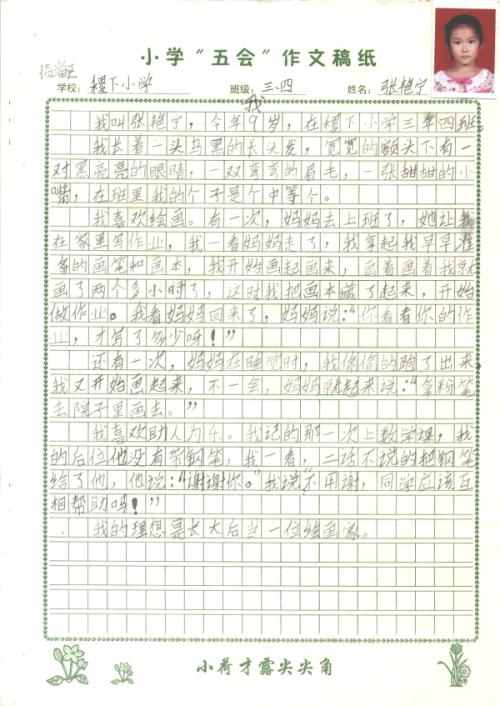 小学“五会”作文稿纸
临淄区
学校：稷下小学 班级：三、四 姓名：张艳宁
我
我叫张艳宁，今年9岁，在稷下小学三年四班。
我长着一头乌黑的长头发，宽宽的额头下有一
对黑亮亮的眼睛，一双弯弯的眉毛，一张甜甜的小
嘴，在班里我的个子是个中等个。
我喜欢绘画。有一次，妈妈去上班了，她让我
在家里写作业，我一看妈妈走了，我拿起我早早准
备的画笔和画本，我开始画起画来，画着画着我就
画了两个多小时了，这时我把画本藏了起来，开始
做作业。我看妈妈回来了，妈妈说：“你看看你的作
业，才写了多少呀！”
还有一次，妈妈在睡觉时，我偷偷的跑了出来
我又开始画起来，不一会，妈妈就起来说：“拿粉笔
去院子里画去。”
我喜欢助人为乐。我记的那一次上数学课，我
的后位他没有带钢笔，我一看，二话不说的把钢笔
给了他，他说：“谢谢你。”我说“不用谢，同学应该互
相帮助吗！”
我的理想要长大后当一位绘画家。
小荷才露尖尖角